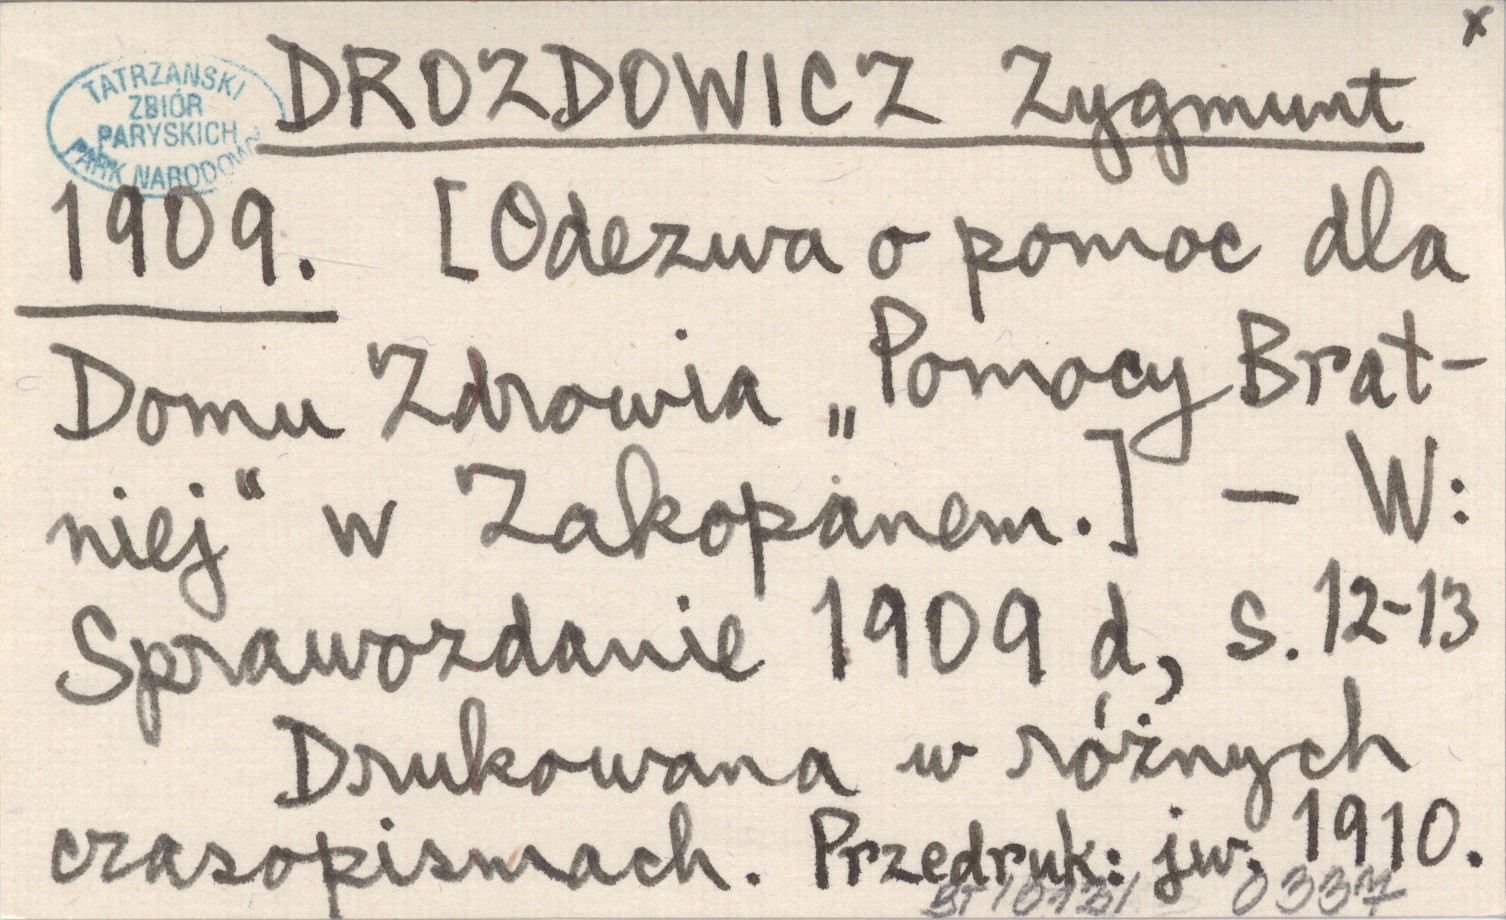 x
TATRZAŃSKI
ZBIÓR
PARYSKICH
PARK NARODOWY
DROZDOWICZ Zygmunt
1909. [Odezwa o pomoc dla
Domu Zdrowia „Pomocy Brat-
niej“ w Zakopanem.] – W:
Sprawozdanie 1909 d, s. 12-13
Drukowana w różnych
czasopismach. Przedruk: jw. 1910.